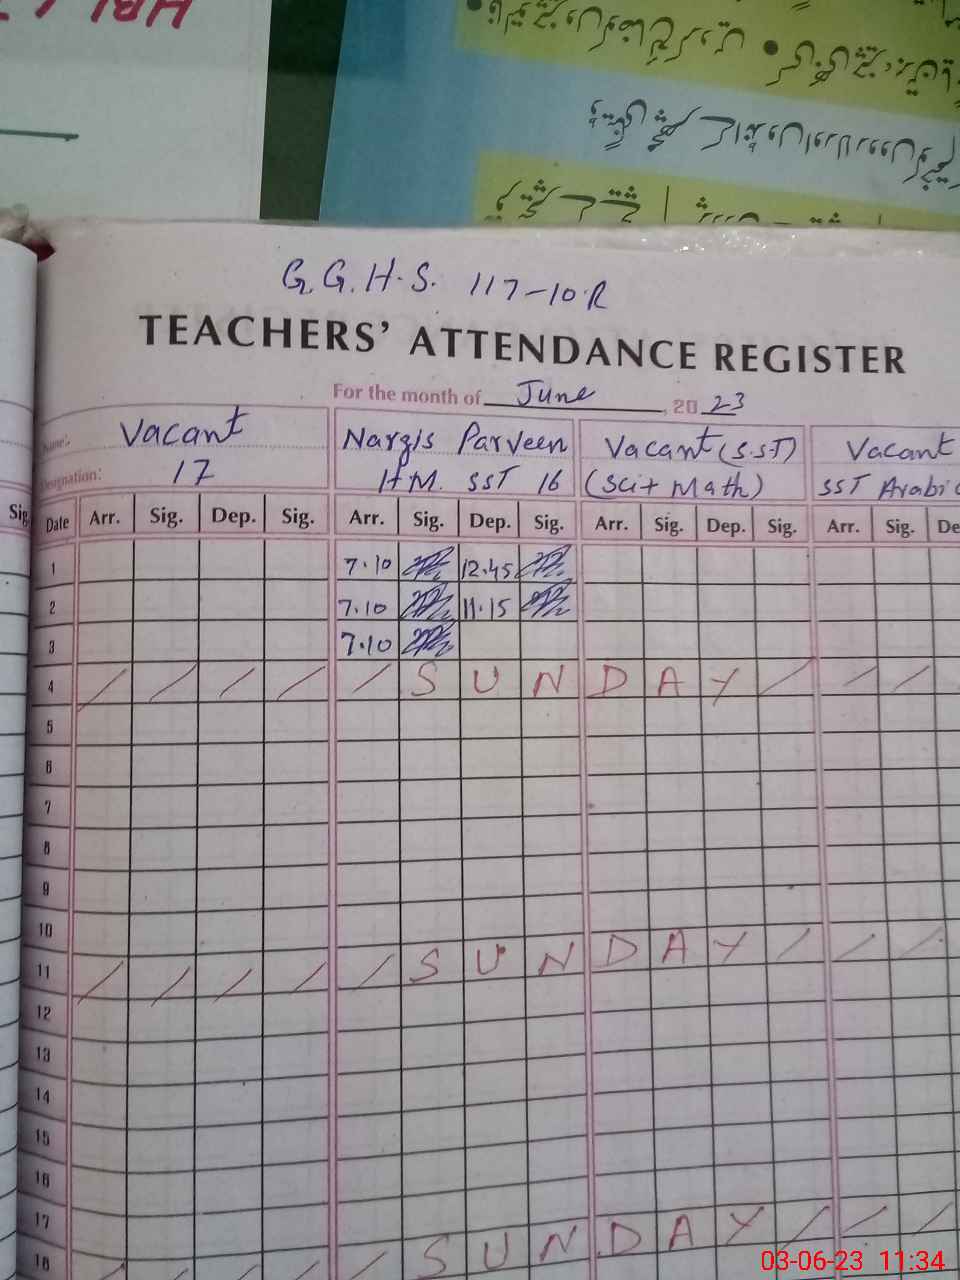 G.G.H.S. 117-10.R
TEACHERS' ATTENDANCE REGISTER
For the month of June, 20 23
Name: Vacant Nargis Parveen Vacant (S.S.T) Vacant
Designation: 17 H.M. SST 16 (Sci + Math) SST Arabic
Sig.
Date Arr. Sig. Dep. Sig. Arr. Sig. Dep. Sig. Arr. Sig. Dep. Sig. Arr. Sig. De
1 7.10 12.45
2 7.10 11.15
3 7.10
4 SUNDAY
5
6
7
8
9
10
11 SUNDAY
12
13
14
15
16
17
18 SUNDAY
03-06-23 11:34